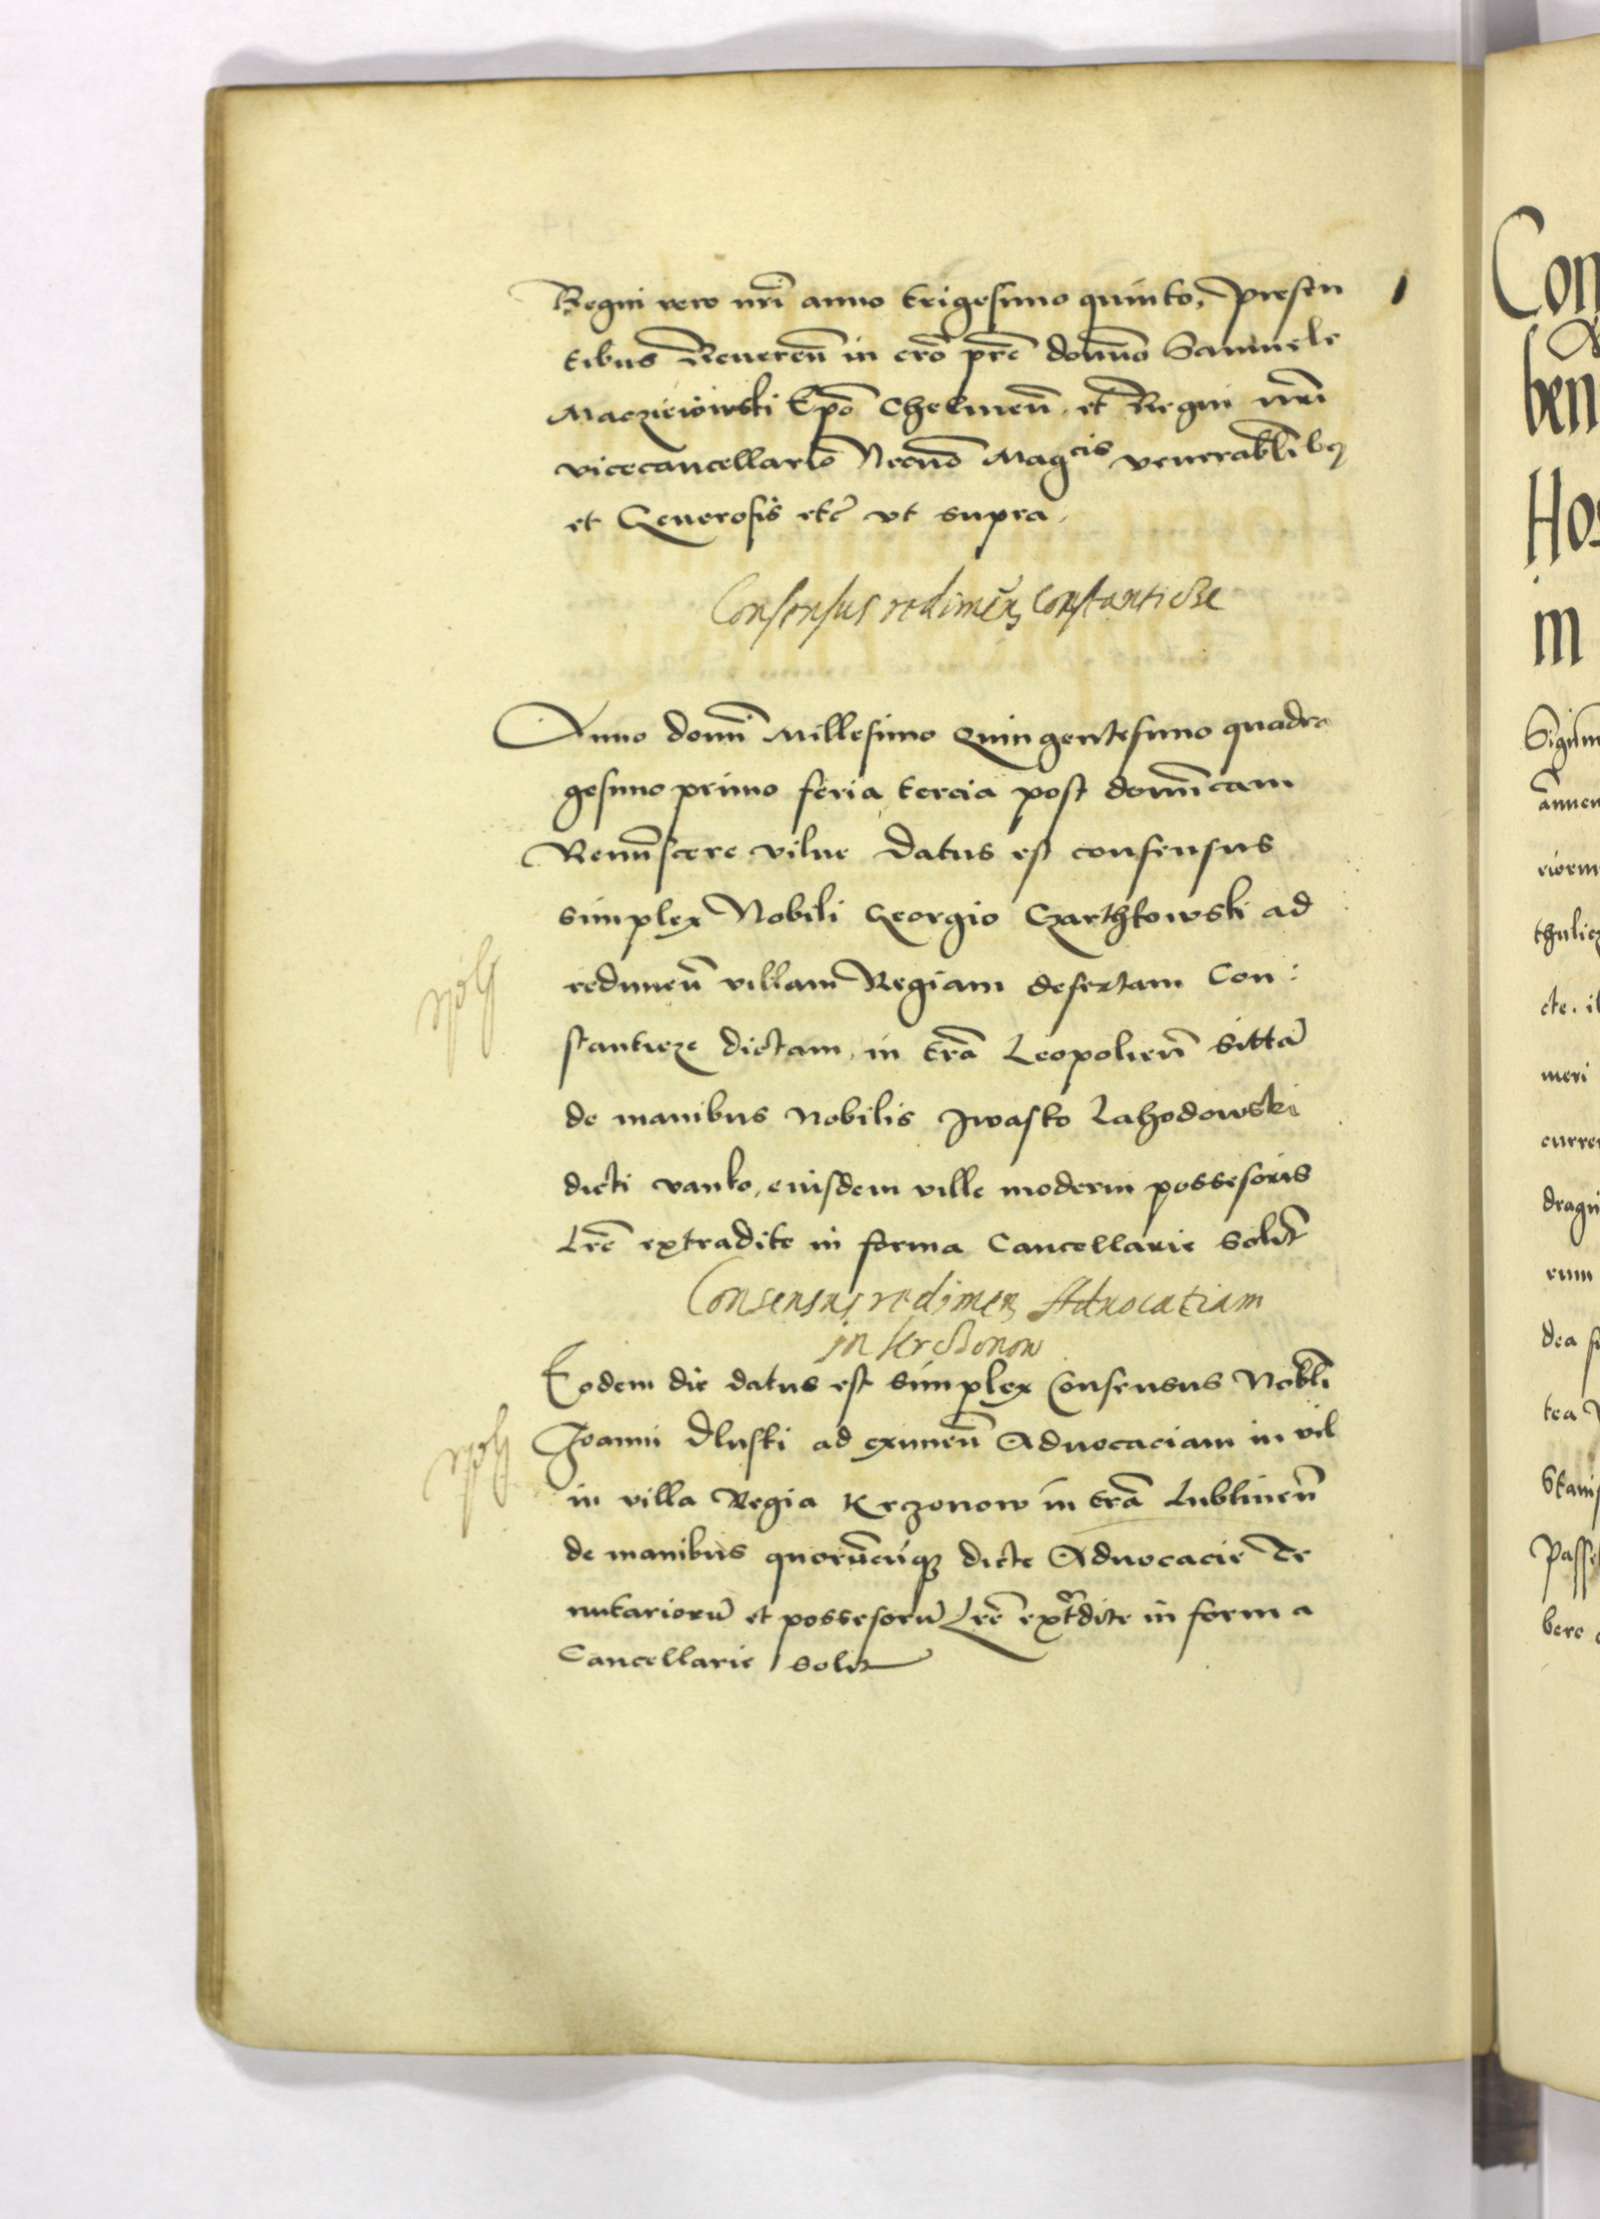 Regni vero nrĩ anno trigesimo quinto, presen
tibus Reueren̄ in cr̃o pr̃e domno Samuele
Maczieiowski Ep̃o Chelmen̄ et Regni nrĩ
vicecancellario Necnō Mag^cis venerablĩbꝫ
et Generosis etc̃ vt supra.
Consensus redimen̄ Constanticze
Anno domnĩ Millesimo Quingentesimo quadra
gesimo primo feria tercia post domĩcam
Reminĩscere vilne datus est consensus
simplex Nobili Georgio Czarthkowski ad
redimen̄ villam Regiam desertam Con:
stantieze dictam, in trã Leopolien̄ sittã
de manibus nobilis Jwasko Lahodowski
dicti vanko, eiusdem ville moderni possesoris
Lrẽ extradite in forma Cancellarie solit̃
Consensus redimen Aduocatiam
in Krczonow
Eodem die datus est simplex Consensus Nobli
Joanni Dluski ad eximen̄ Aduocaciam in vil
in villa Regia Krczonow in trã Lublinen̄
de manibus quorũcũqꝫ dicte Aduocacie Te
nutariorũ et possesorũ Lrẽ extr̃dite in forma
Cancellarie solit
Con
ben
Hos
in
meri
dea
tea
bere